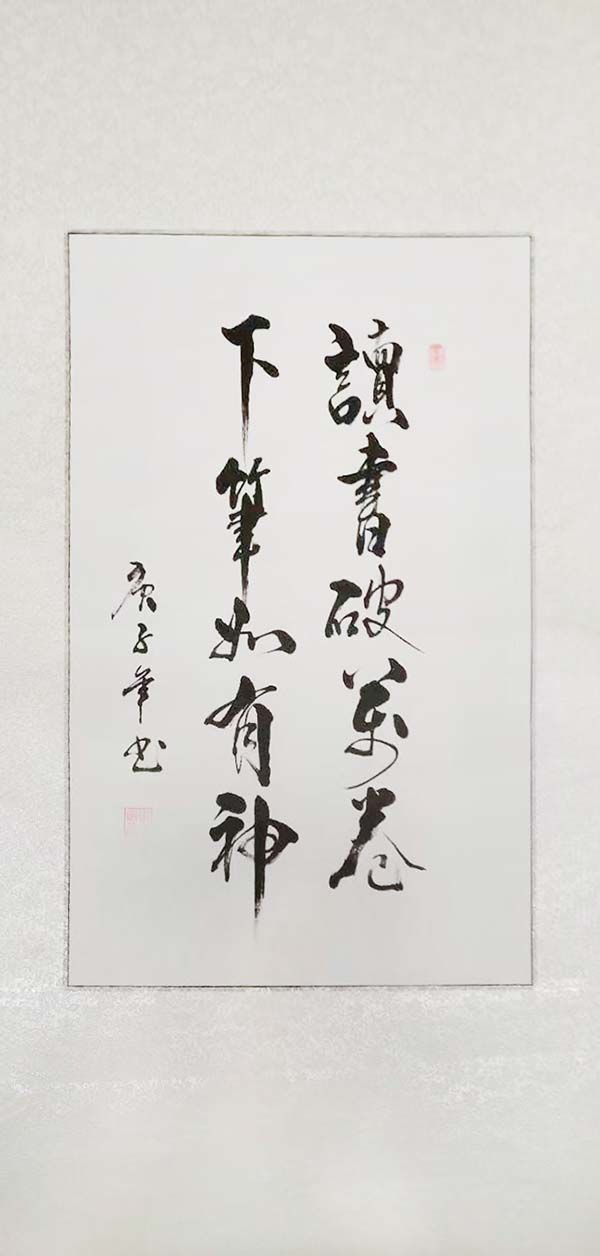 讀書破萬卷
下筆如有神
庚子年书